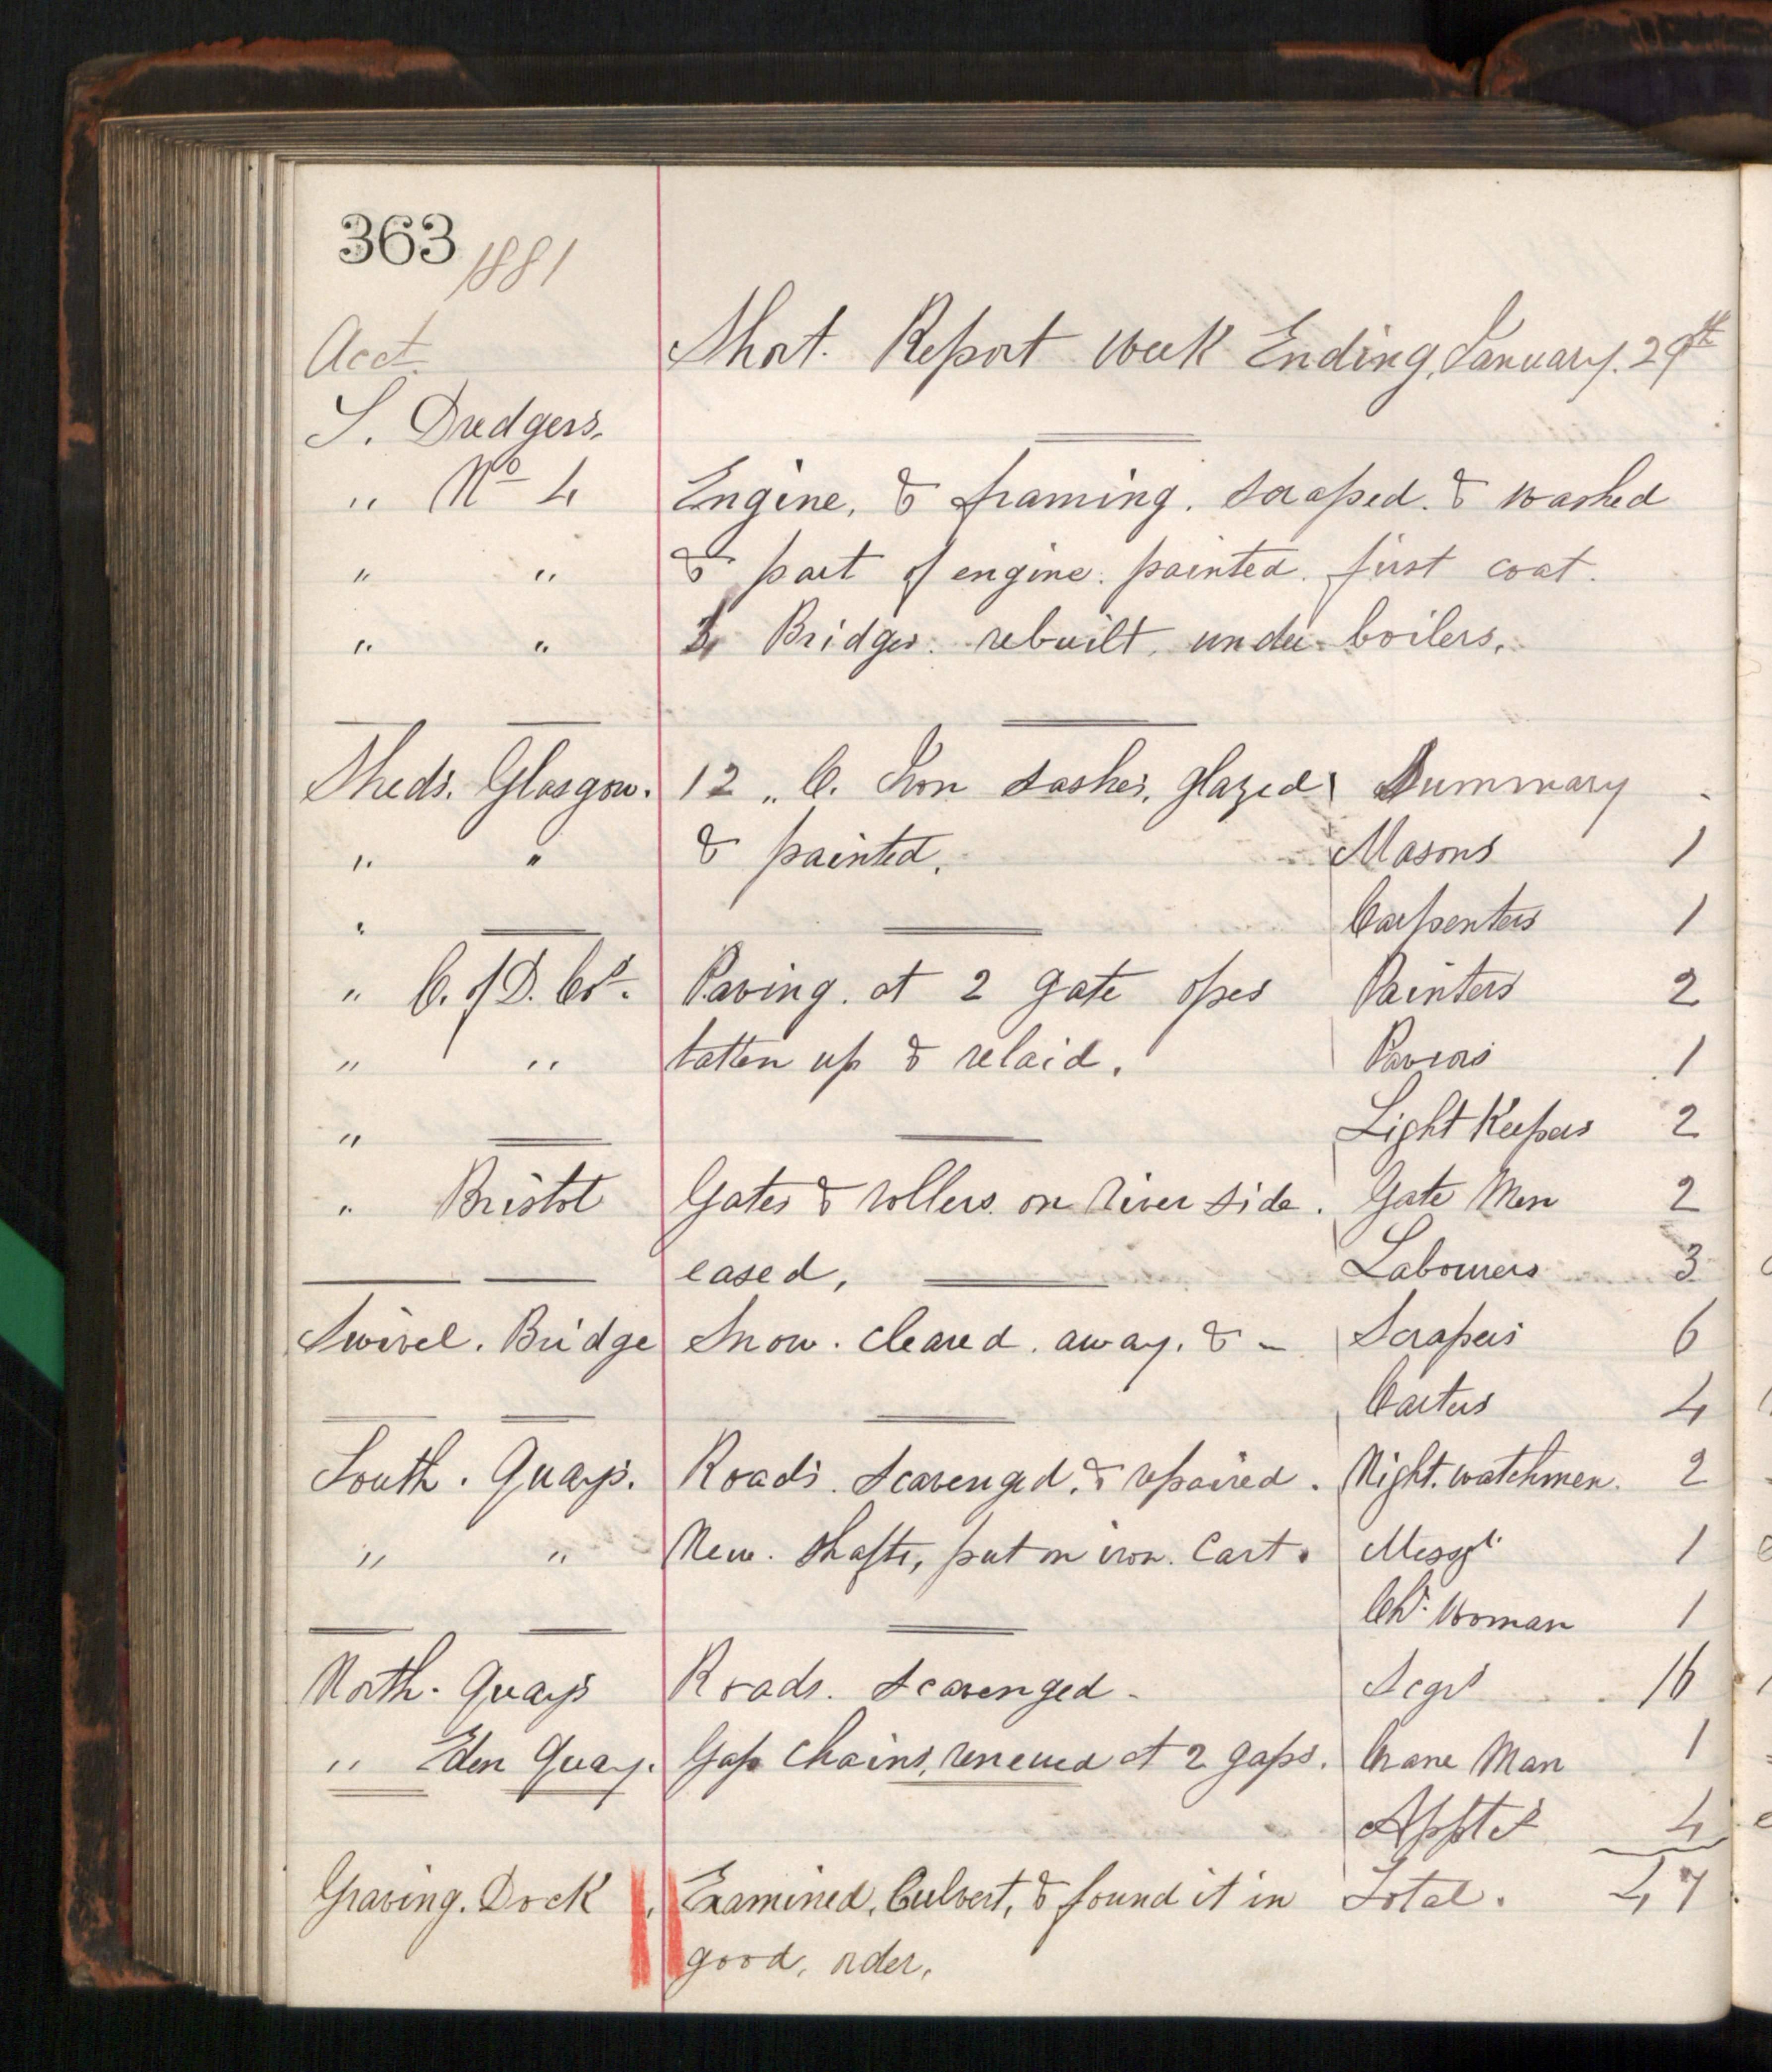 363 1881
Acct. Short. Report Week Ending, January. 29th
S. Dredgers.
" No 4 Engine, & framing. scraped. & washed
" " & part of engine. painted. first coat.
" " 4 Bridges. rebuilt. under boilers.
Sheds. Glasgow. 12 " C. Iron sashes, glazed Summary
" " & painted. Masons 1
" Carpenters 1
" C. of D. Co. Paving. at 2 gate opes Painters 2
" " tatten up & relaid. Paviors 1
" Light Keepers 2
" Bristol Gates & rollers. on River side. Gate Men 2
eased, Labourers 3
Swivel. Bridge Snow. cleared. away. & - Scrapers 6
Carters 4
South. Quays. Roads. scavenged. & repaired. Night. watchmen. 2
" " New. shafts, put on iron. Cart. Messgr 1
Chr. Woman 1
North. Quays Roads. scavenged - Scgrs 16
" Eden Quay. Gap Chains, renewed at 2 gaps. Crane Man 1
Apptes 4
Graving. Dock Examined, Culvert, & found it in Total. 47
good, order.